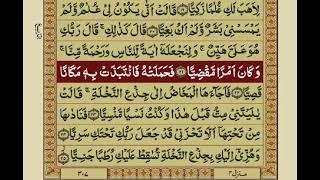 لِاَهَبَ لَكِ غُلٰمًا زَكِیًّا ﴿۱۹﴾ قَالَتْ اَنّٰی یَكُوْنُ لِیْ غُلٰمٌ وَّلَمْ
یَمْسَسْنِیْ بَشَرٌ وَّلَمْ اَكُ بَغِیًّا ﴿۲۰﴾ قَالَ كَذٰلِكِ ۚ قَالَ رَبُّكِ
هُوَ عَلَیَّ هَیِّنٌ ۚ وَلِنَجْعَلَهٗۤ اٰیَةً لِّلنَّاسِ وَرَحْمَةً مِّنَّا ۚ
وَكَانَ اَمْرًا مَّقْضِیًّا ﴿۲۱﴾ فَحَمَلَتْهُ فَانْتَبَذَتْ بِهٖ مَكَانًا
قَصِیًّا ﴿۲۲﴾ فَاَجَآءَهَا الْمَخَاضُ اِلٰی جِذْعِ النَّخْلَةِ ۚ قَالَتْ
یٰلَیْتَنِیْ مِتُّ قَبْلَ هٰذَا وَكُنْتُ نَسْیًا مَّنْسِیًّا ﴿۲۳﴾ فَنَادٰىهَا
مِنْ تَحْتِهَاۤ اَلَّا تَحْزَنِیْ قَدْ جَعَلَ رَبُّكِ تَحْتَكِ سَرِیًّا ﴿۲۴﴾
وَهُزِّیْۤ اِلَیْكِ بِجِذْعِ النَّخْلَةِ تُسٰقِطْ عَلَیْكِ رُطَبًا جَنِیًّا ﴿۲۵﴾
منزل ۴
۳۰۷